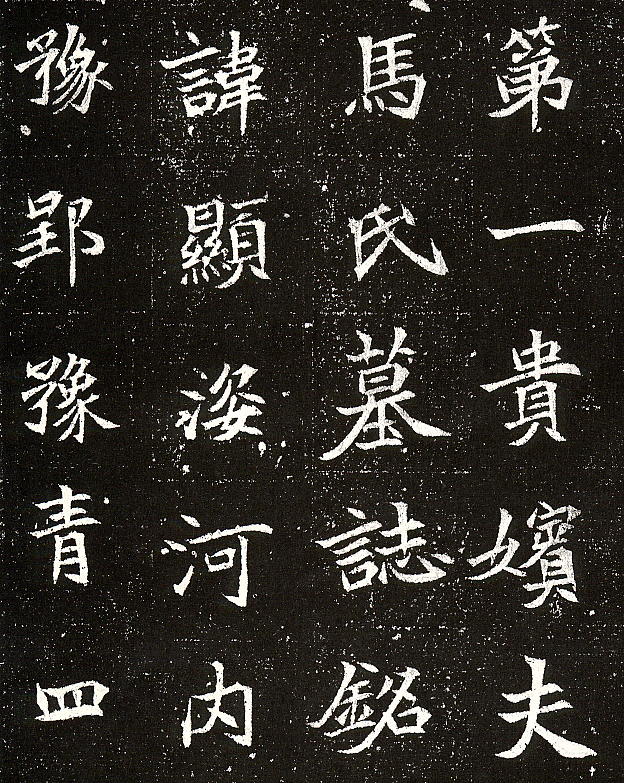 第一貴嬪夫
馬氏墓誌銘
諱顯姿河内
豫郢豫青四